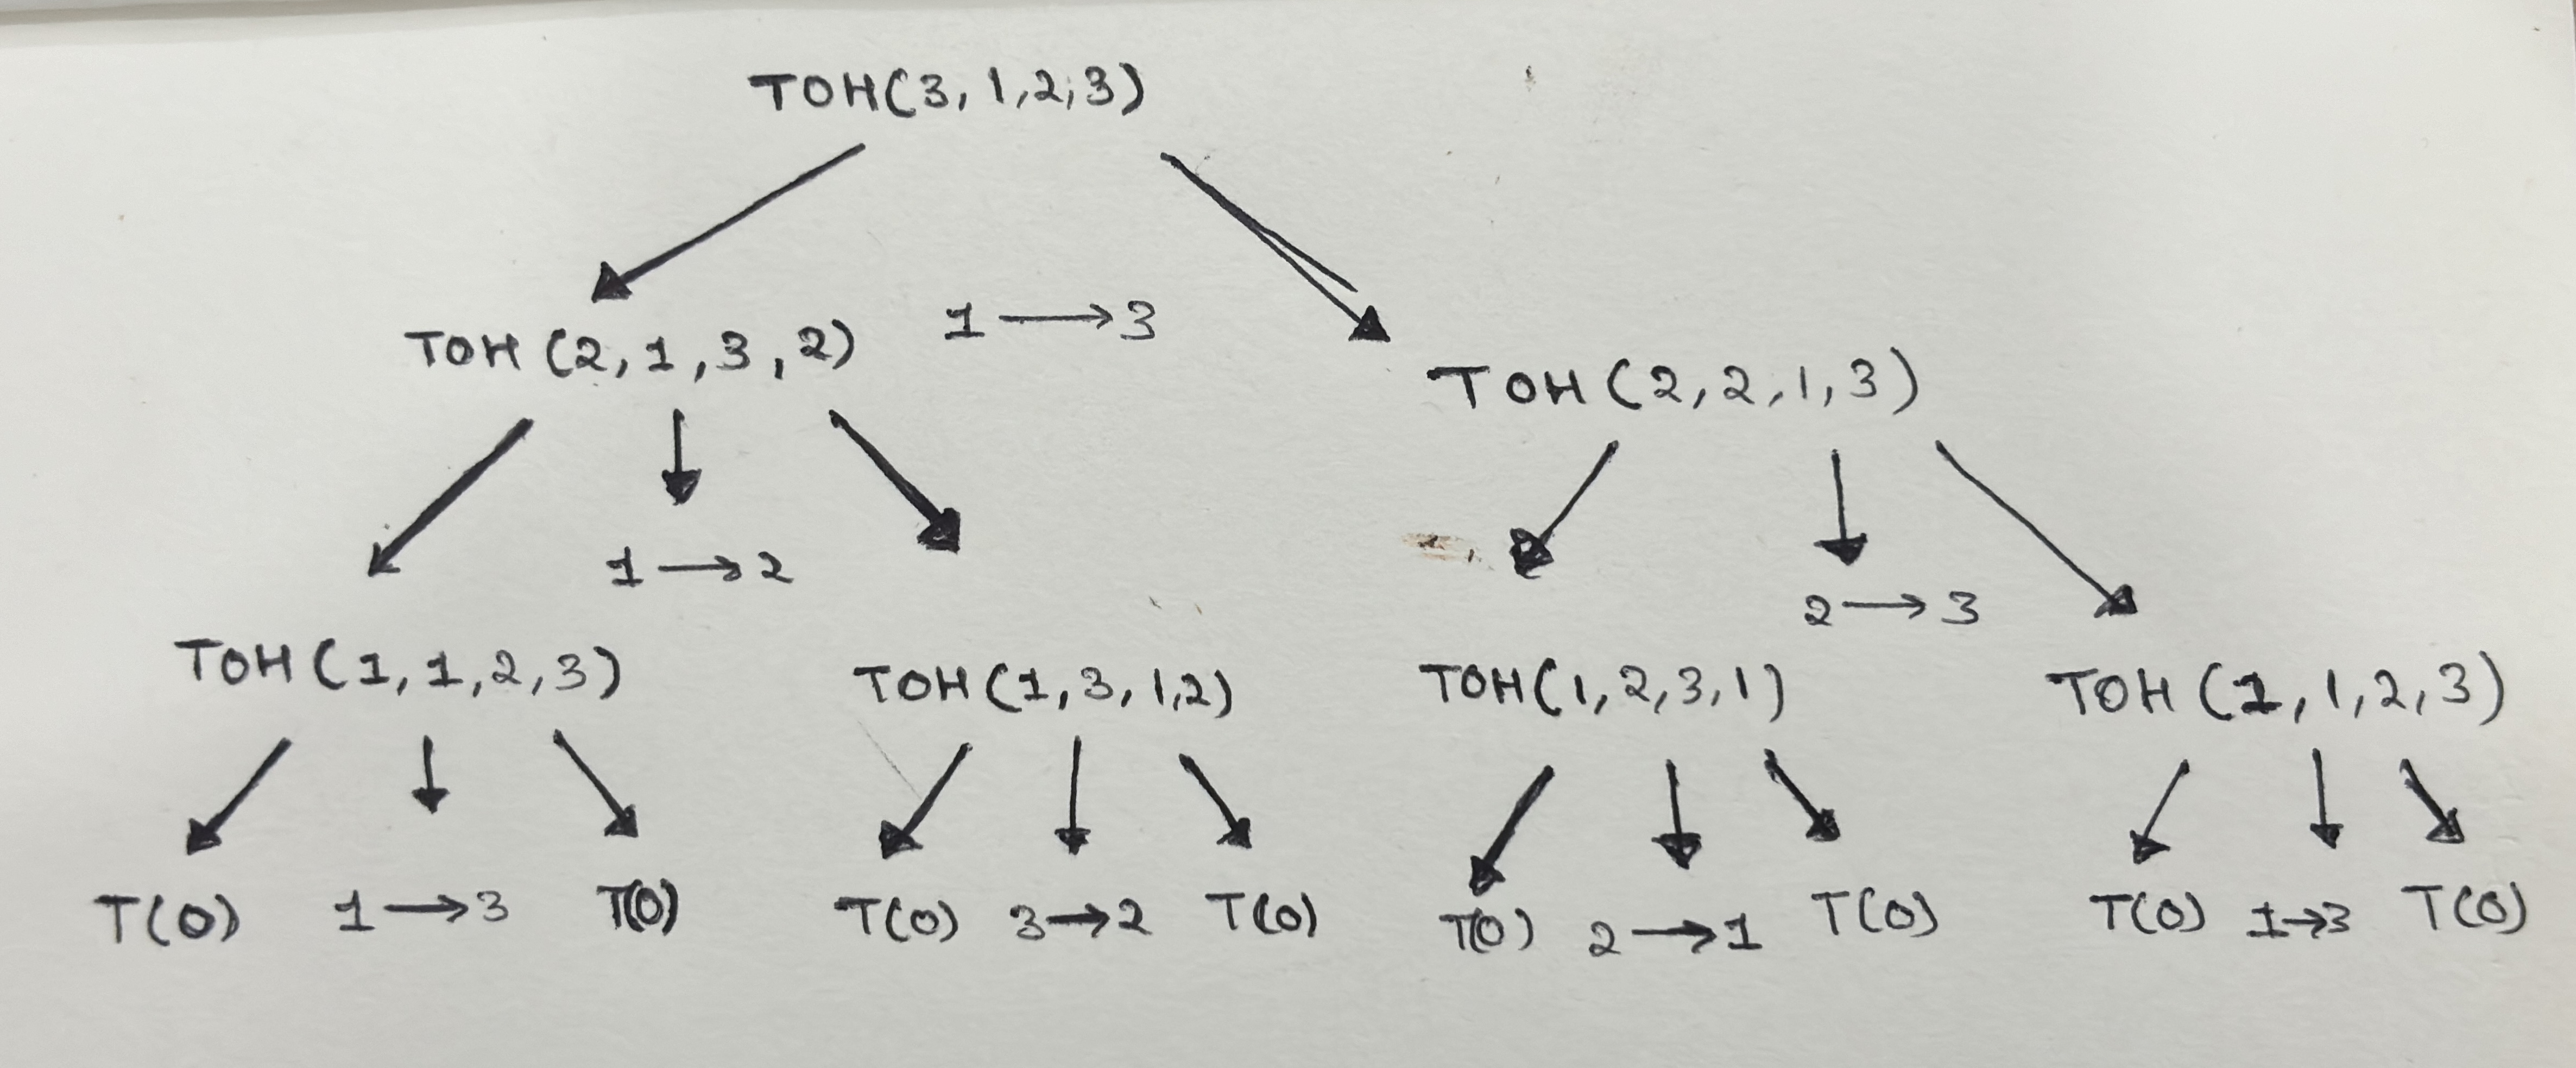 TOH(3,1,2,3)
1→3
TOH(2,1,3,2)
TOH(2,2,1,3)
1→2
2→3
TOH(1,1,2,3) TOH(1,3,1,2) TOH(1,2,3,1) TOH(1,1,2,3)
T(0) 1→3 T(0) T(0) 3→2 T(0) T(0) 2→1 T(0) T(0) 1→3 T(0)